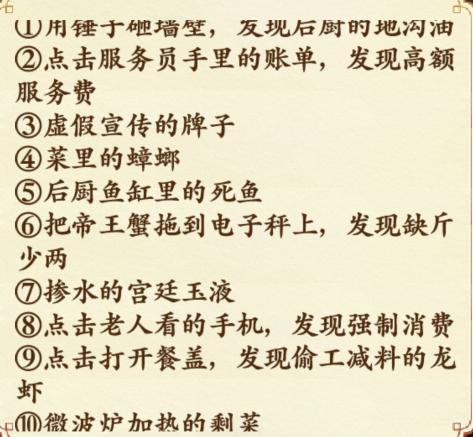 ①用锤子砸墙壁，发现后厨的地沟油
②点击服务员手里的账单，发现高额
服务费
③虚假宣传的牌子
④菜里的蟑螂
⑤后厨鱼缸里的死鱼
⑥把帝王蟹拖到电子秤上，发现缺斤
少两
⑦掺水的宫廷玉液
⑧点击老人看的手机，发现强制消费
⑨点击打开餐盖，发现偷工减料的龙
虾
⑩微波炉加热的剩菜